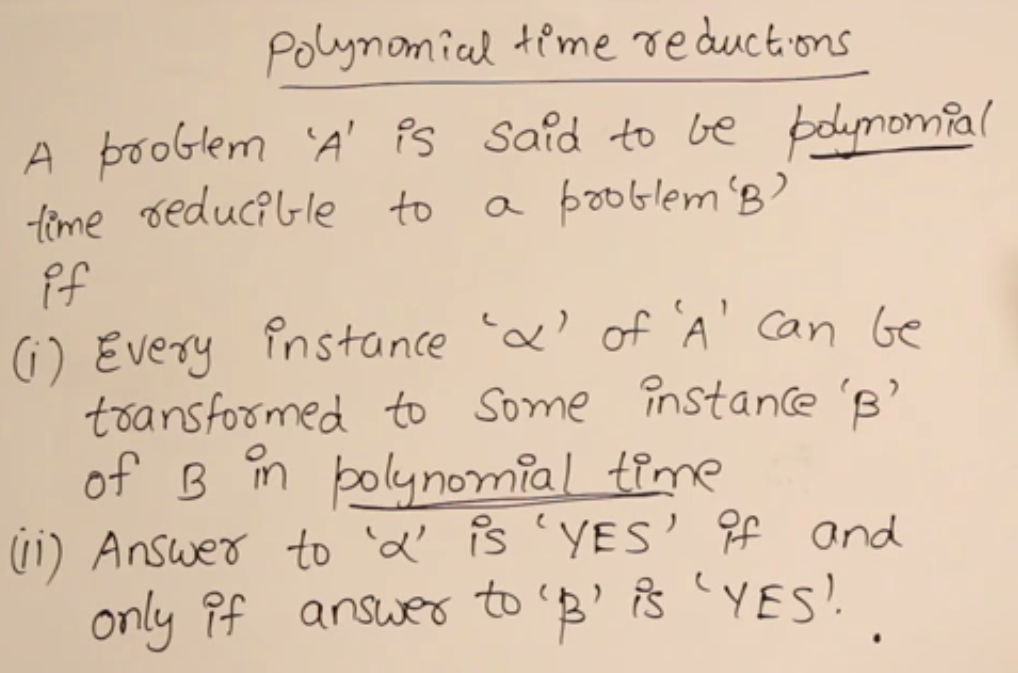 Polynomial time reductions
A problem 'A' is said to be polynomial
time reducible to a problem 'B'
if
(i) Every instance 'α' of 'A' can be
transformed to some instance 'β'
of B in polynomial time
(ii) Answer to 'α' is 'YES' if and
only if answer to 'β' is 'YES'.